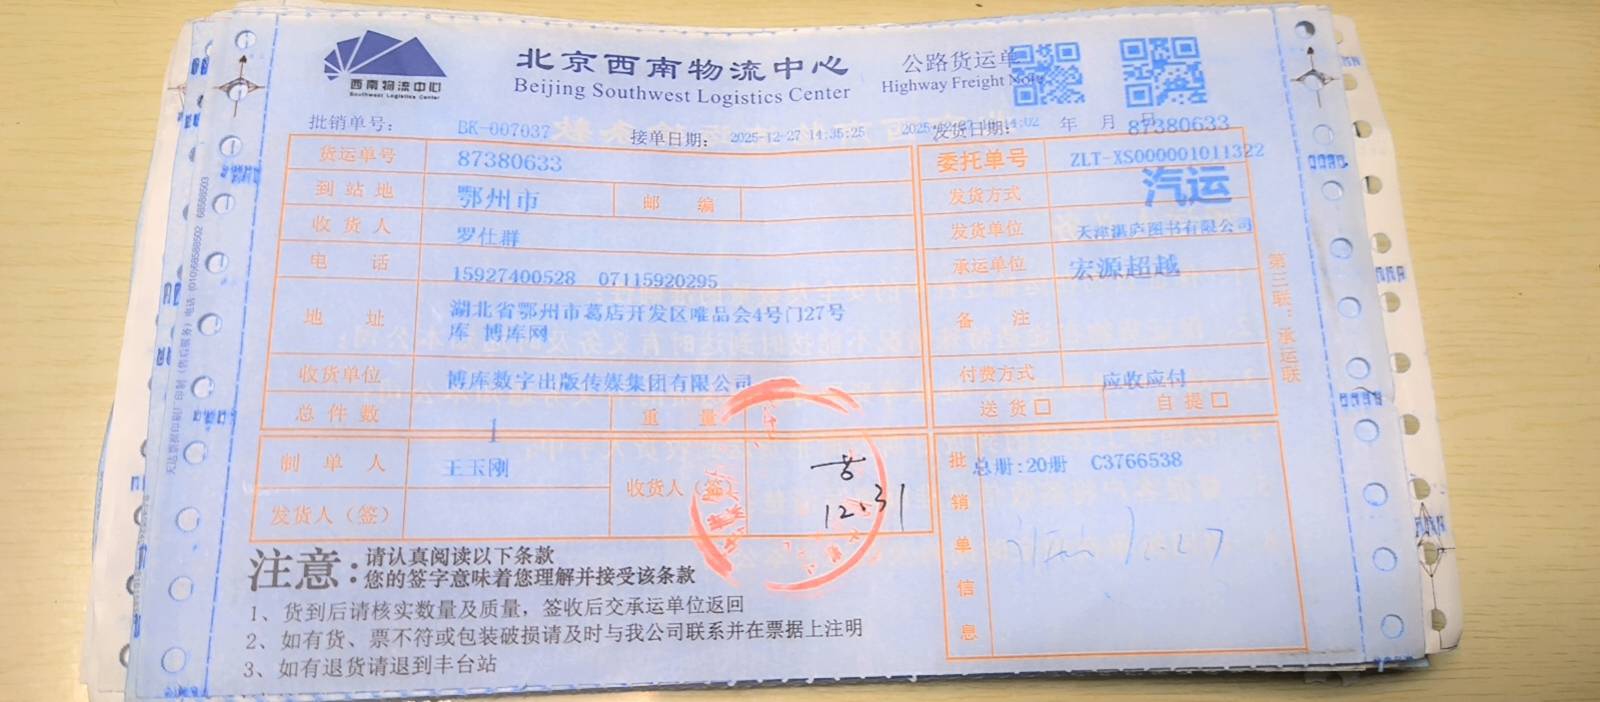 西南物流中心
Southwest Logistics Center
北京西南物流中心
Beijing Southwest Logistics Center
公路货运单
Highway Freight Note
批销单号: BK-007037 接单日期: 2025-12-27 14:35:25 发货日期: 年 月 日
87380633
货运单号 87380633 委托单号 ZLT-XS000001011322
到站地 鄂州市 邮编 发货方式 汽运
收货人 罗仕群 发货单位 天津湛庐图书有限公司
电话 15927400528 07115920295 承运单位 宏源超越
地址 湖北省鄂州市葛店开发区唯品会4号门27号
库 博库网
备注
收货单位 博库数字出版传媒集团有限公司 付费方式 应收应付
总件数 1 重量 送货□ 自提□
制单人 王玉刚 收货人(签) 12.31
发货人(签)
批销单信息 总册:20册 C3766538
第三联:承运联
注意:请认真阅读以下条款
您的签字意味着您理解并接受该条款
1、货到后请核实数量及质量,签收后交承运单位返回
2、如有货、票不符或包装破损请及时与我公司联系并在票据上注明
3、如有退货请退到丰台站